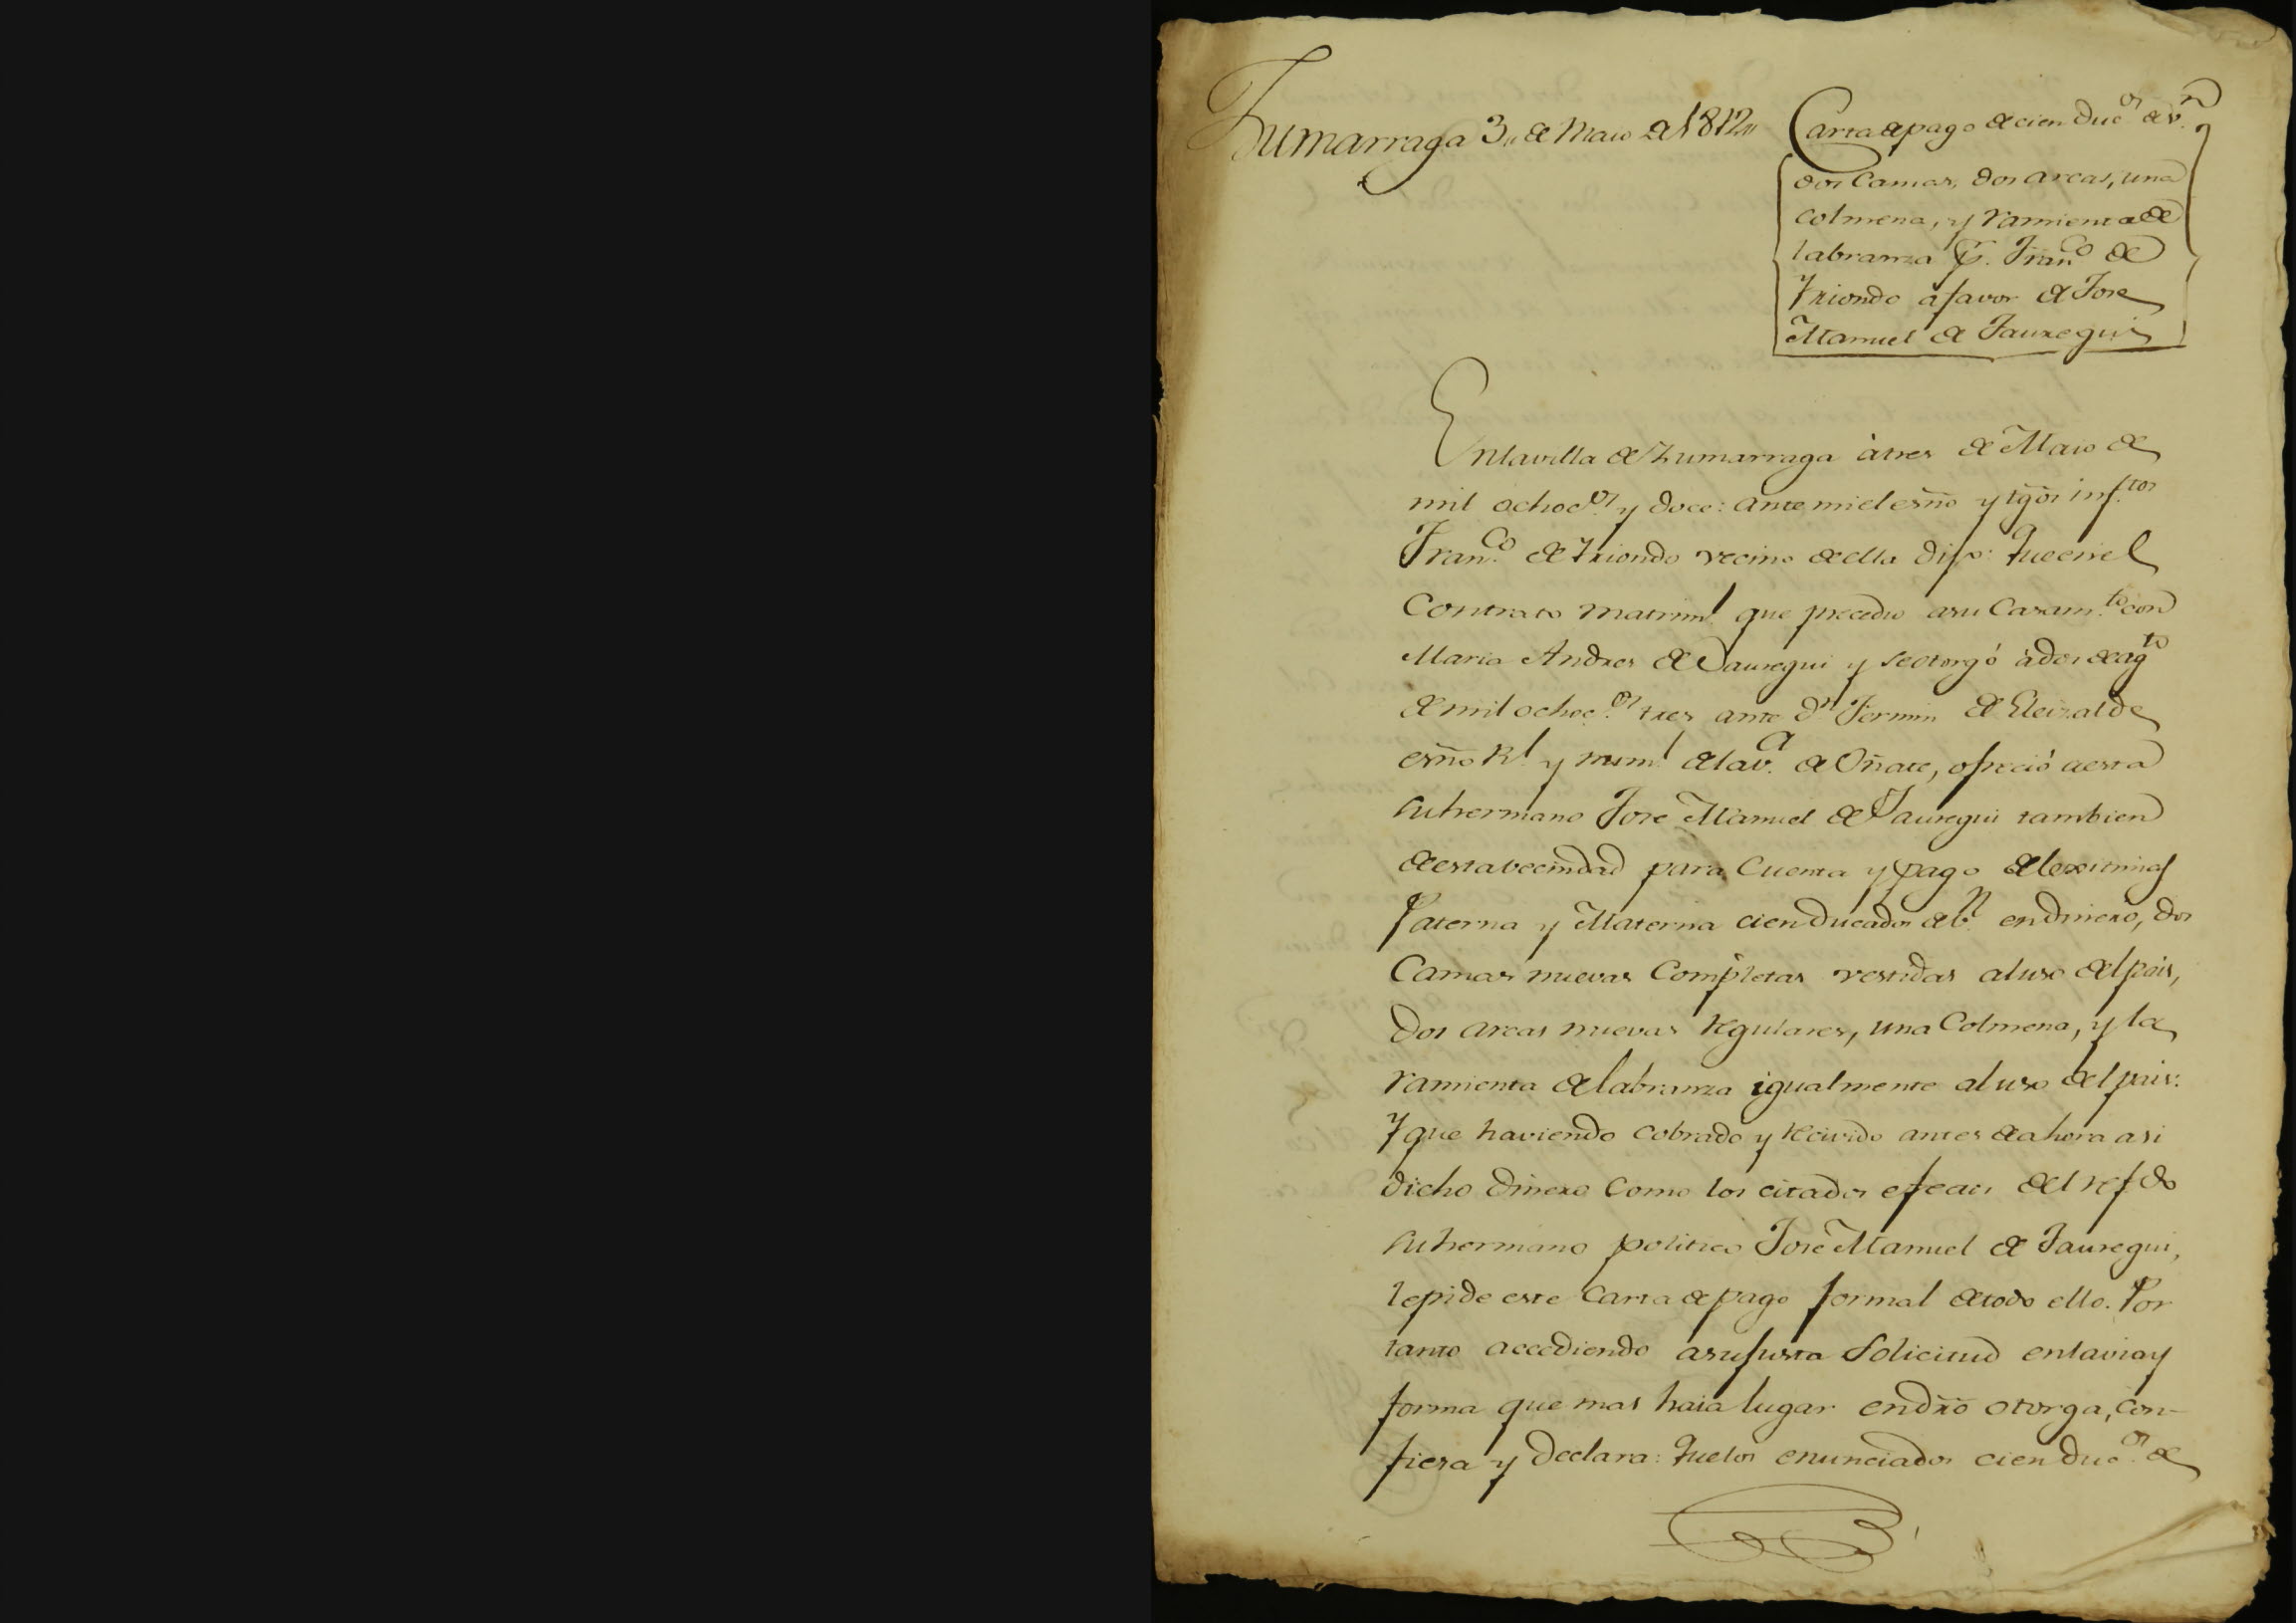 Zumarraga 3,, de Maio de 1812,,
Carta de pago de cien duc.os de v.n
dos Camas, dos arcas, una
colmena, y ramienta de
labranza p.r Fran.co de
Yriondo à favor de Jose
Manuel de Jauregui
En la villa de Zumarraga à tres de Maio de
mil ochoc.os y doce: ante mi el esño y tgos inf.tos
Fran.co de Yriondo vecino de ella dijo: Que en el
Contrato matrim.l que precediò a su Casam.to con
Maria Andres de Jauregui y se otorgó à dos de ag.to
de mil ochoc.os tres ante d.n Fermin de Eleizalde
esño R.l y num.l de la v.a de Oñate, ofreció a esta
su hermano Jose Manuel de Jauregui tambien
de esta vecindad para Cuenta y pago de lexitimas
Paterna y Materna cien ducados de v.n en dinero, dos
Camas nuevas Completas vestidas al uso del pais,
dos arcas nuevas regulares, una Colmena, y la
ramienta de labranza igualmente al uso del pais:
Y que haviendo cobrado y recivido antes de ahora asi
dicho dinero como los citados efectos del refdo
su hermano politico José Manuel de Jauregui,
le pide este Carta de pago formal de todo ello. Por
tanto accediendo a su justa solicitud en la via y
forma que mas haia lugar en dr̃o otorga, con-
fiesa y declara: Que los enunciados cien duc.os de